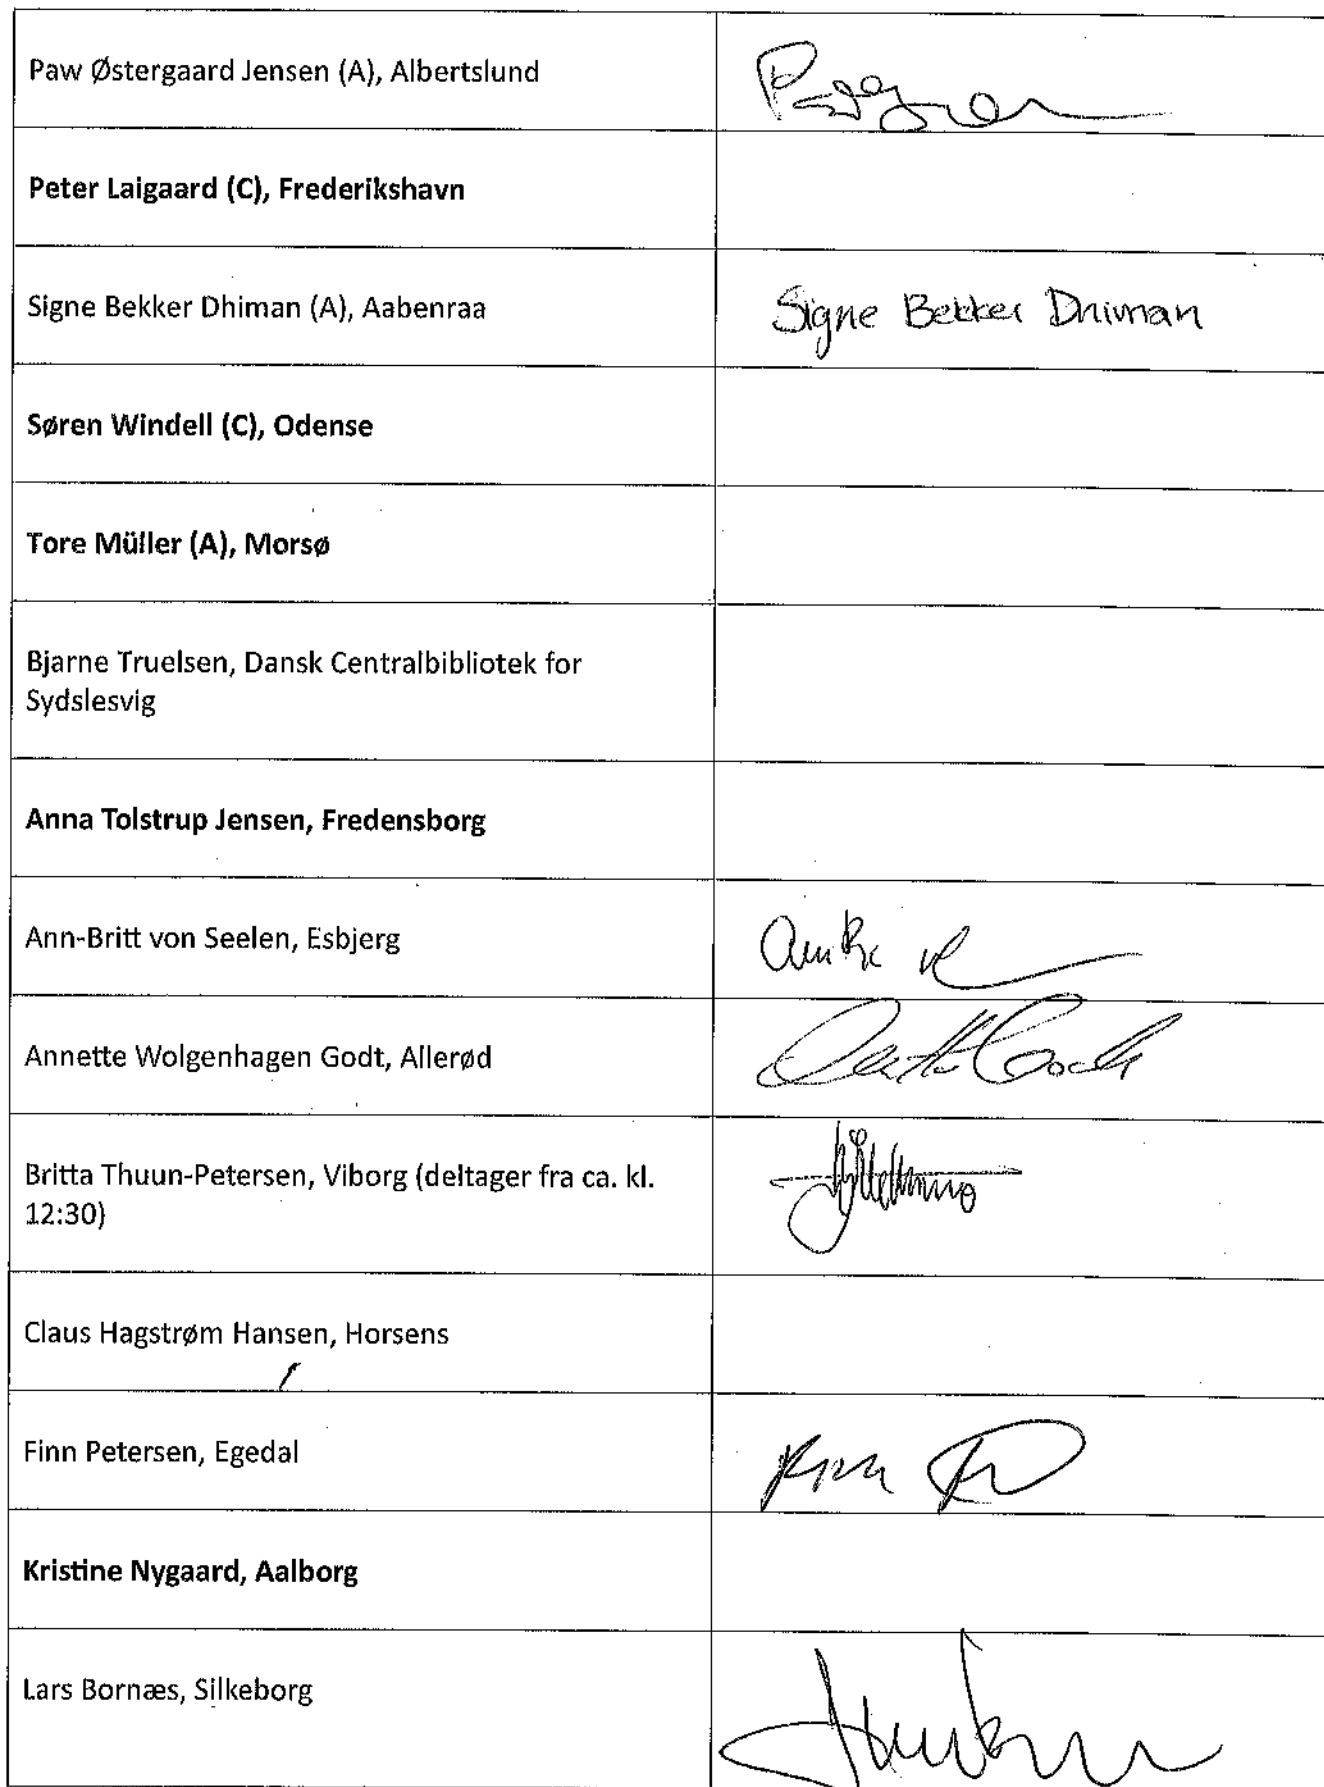 Paw Østergaard Jensen (A), Albertslund
Peter Laigaard (C), Frederikshavn
Signe Bekker Dhiman (A), Aabenraa
Signe Bekker Dhiman
Søren Windell (C), Odense
Tore Müller (A), Morsø
Bjarne Truelsen, Dansk Centralbibliotek for
Sydslesvig
Anna Tolstrup Jensen, Fredensborg
Ann-Britt von Seelen, Esbjerg
Annette Wolgenhagen Godt, Allerød
Britta Thuun-Petersen, Viborg (deltager fra ca. kl.
12:30)
Claus Hagstrøm Hansen, Horsens
Finn Petersen, Egedal
Kristine Nygaard, Aalborg
Lars Bornæs, Silkeborg